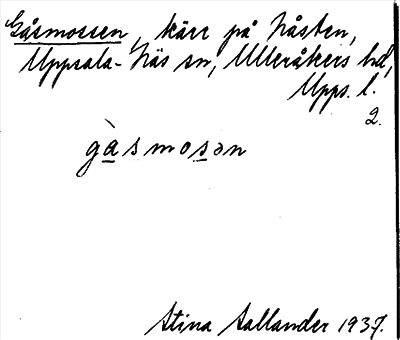 Gåsmossen, kärr på Nåsten,
Uppsala-Näs sn, Ulleråkers hd,
Upps. l.
2.
gàsmosən
Stina Sallander 1937.